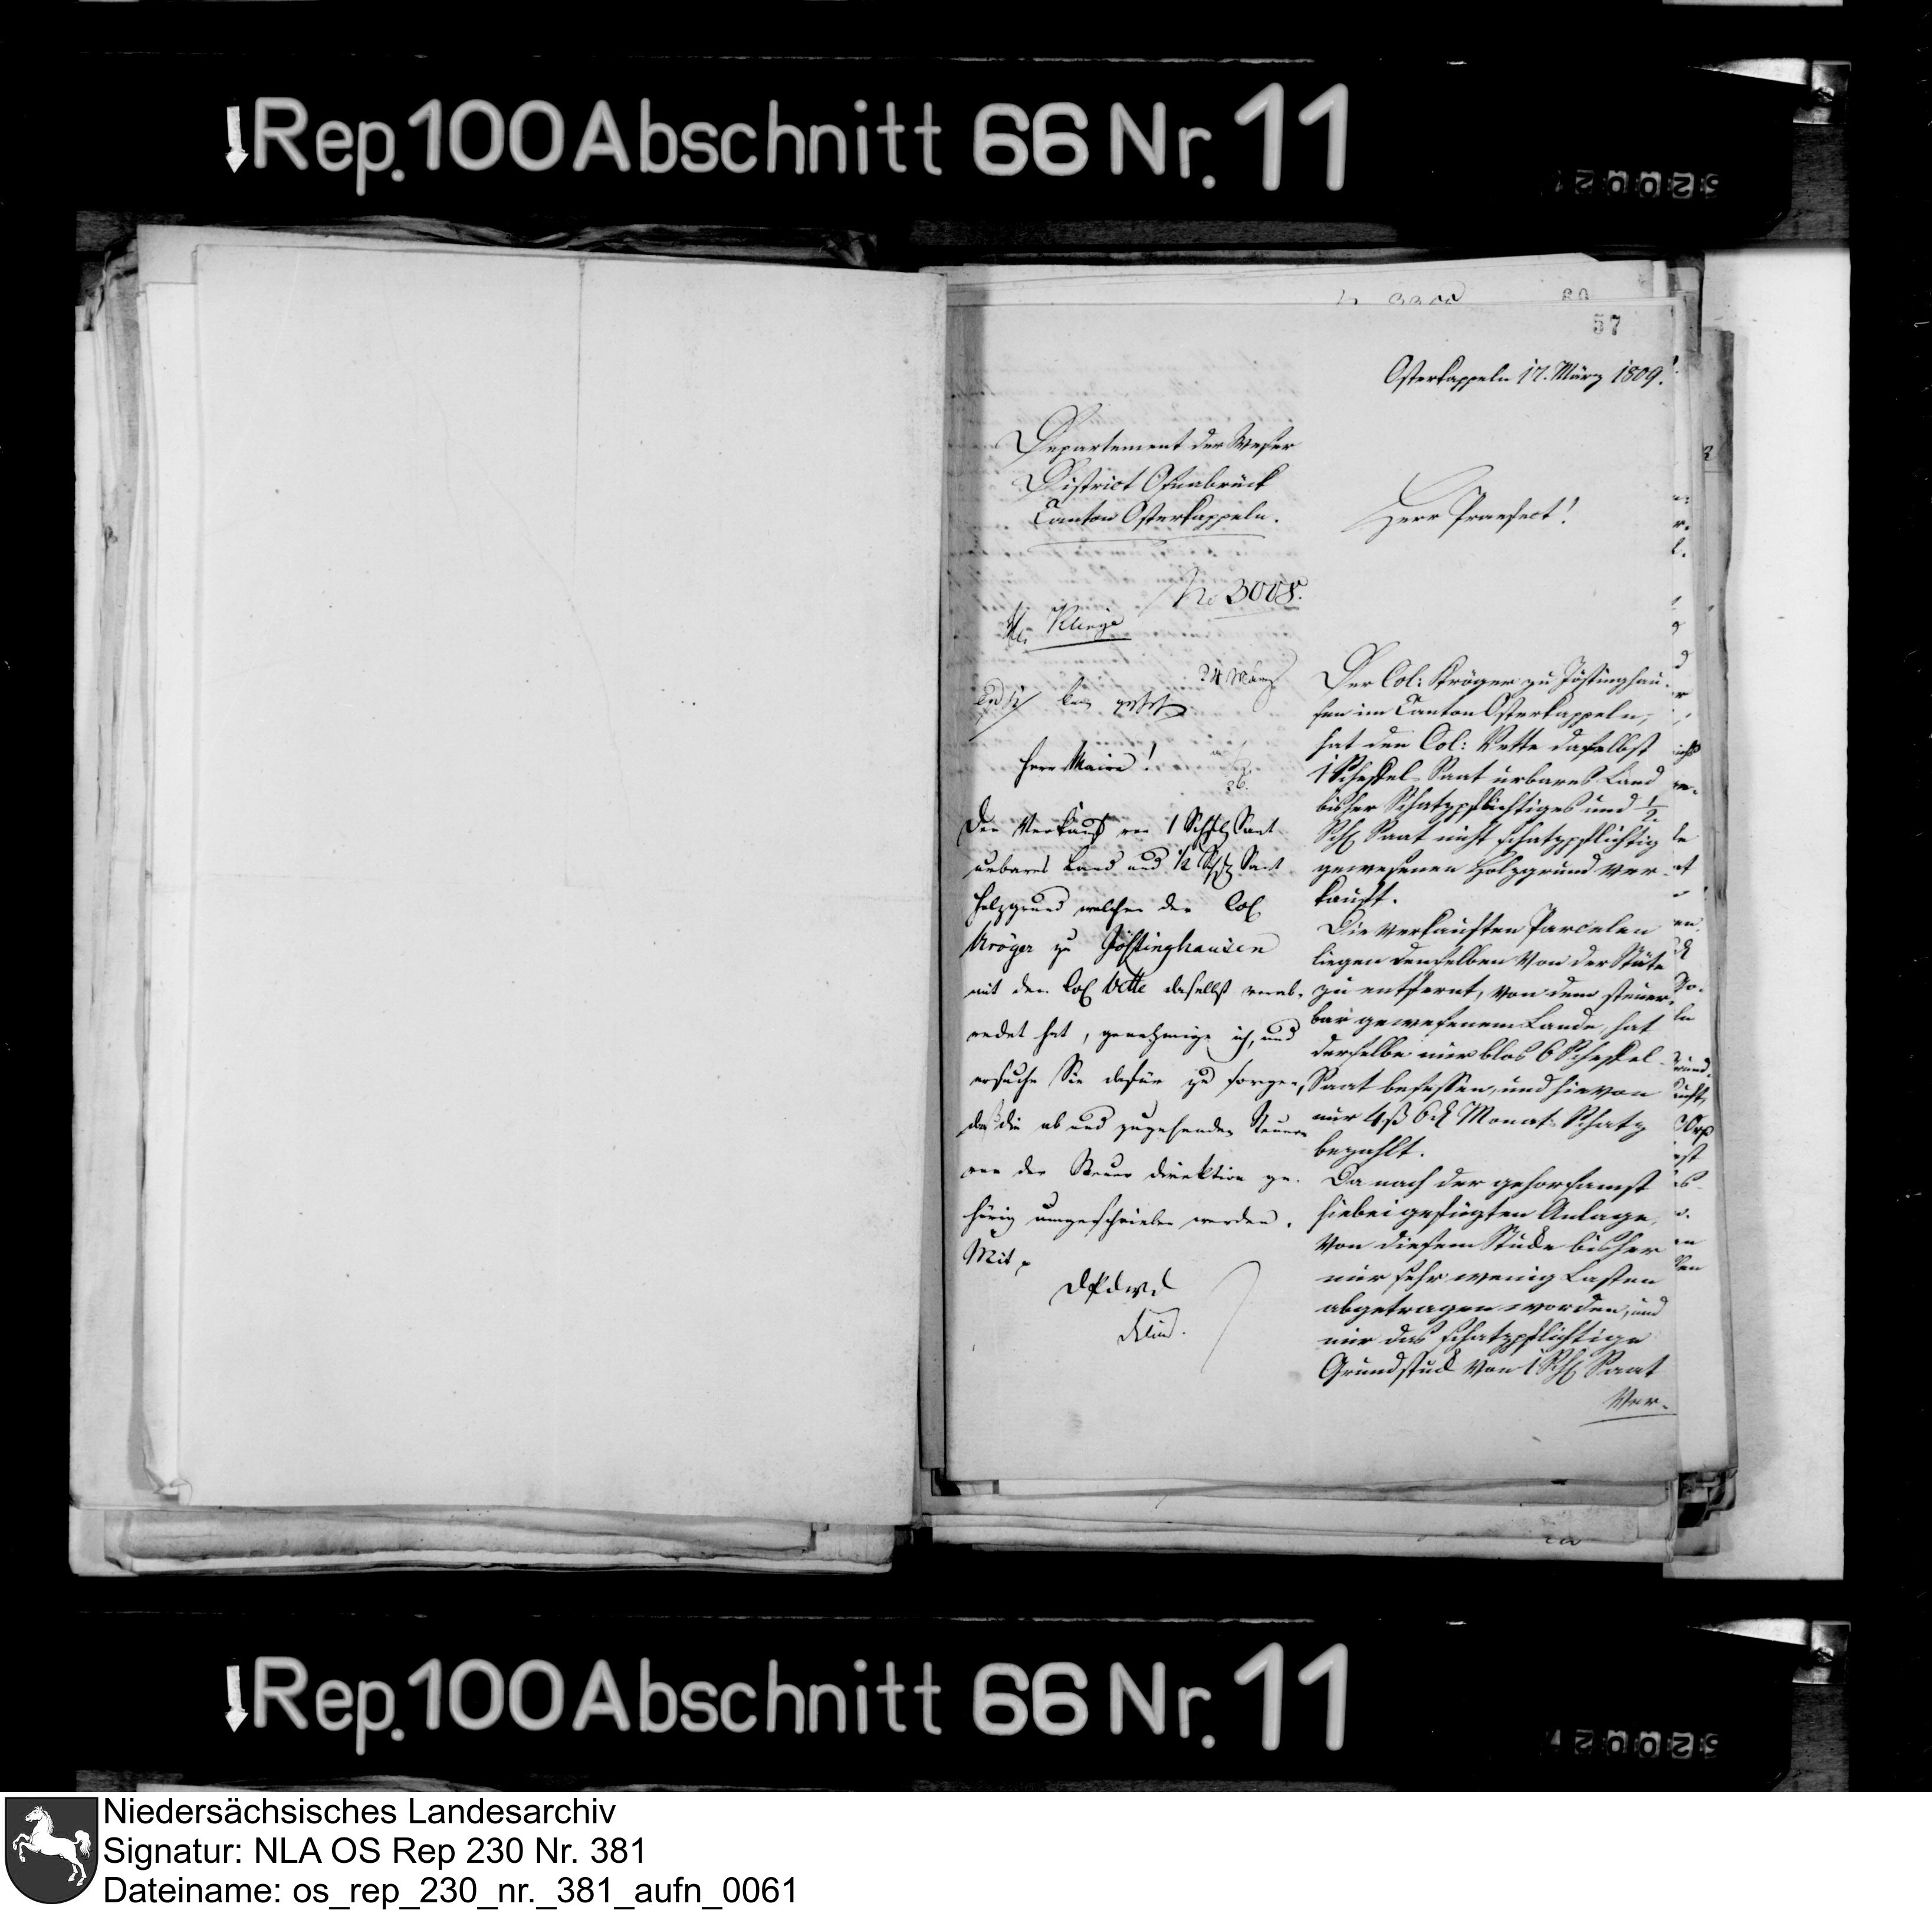 Rep. 100 Abschnitt 66 Nr. 11
57
Osterkappeln 17. März 1809.
Departement der Weser
District Osnabrück
Canton Osterkappeln.
Herr Praefect!
No 3008.
Klinge
24 März
Herr Maire!
26.
Den Verkauf von 1 Schfl Saat
urbares Land und 1/2 Schfl Saat
Holzgrund welchen der Col
Kröger zu Jöstinghausen
mit dem Col Vette daselbst verab-
redet hat, genehmige ich, und
ersuche Sie dafür zu sorgen,
daß die ab und zugehenden Steuern
von der Steuer direktion ge-
hörig umgeschrieben werden.
Mit
DPdwd
Der Col: Kröger zu Jöstinghau-
sen im Canton Osterkappeln,
hat den Col: Vette daselbst
1 Scheffel Saat urbares Land
bisher Schatzpflichtiges und 1/2
Schfl Saat nicht schatzpflichtig
gewesenen Holzgrund ver-
kauft.
Die verkauften Parcelen
liegen denselben von der Stäte
zu entfernt, von dem steuer-
bar gewesenem Lande, hat
derselbe nur blos 6 Scheffel
Saat besessen, und hievon
nur 4 ß 6 d Monat-Schatz
bezahlt.
Da nach der gehorsamst
hiebei gefügten Anlage,
von diesem Stücke bisher
nur sehr wenig Lasten
abgetragen worden, und
nur das schatzpflichtige
Grundstück von 1 Schfl Saat
Ver-
Rep. 100 Abschnitt 66 Nr. 11
Niedersächsisches Landesarchiv
Signatur: NLA OS Rep 230 Nr. 381
Dateiname: os_rep_230_nr._381_aufn_0061